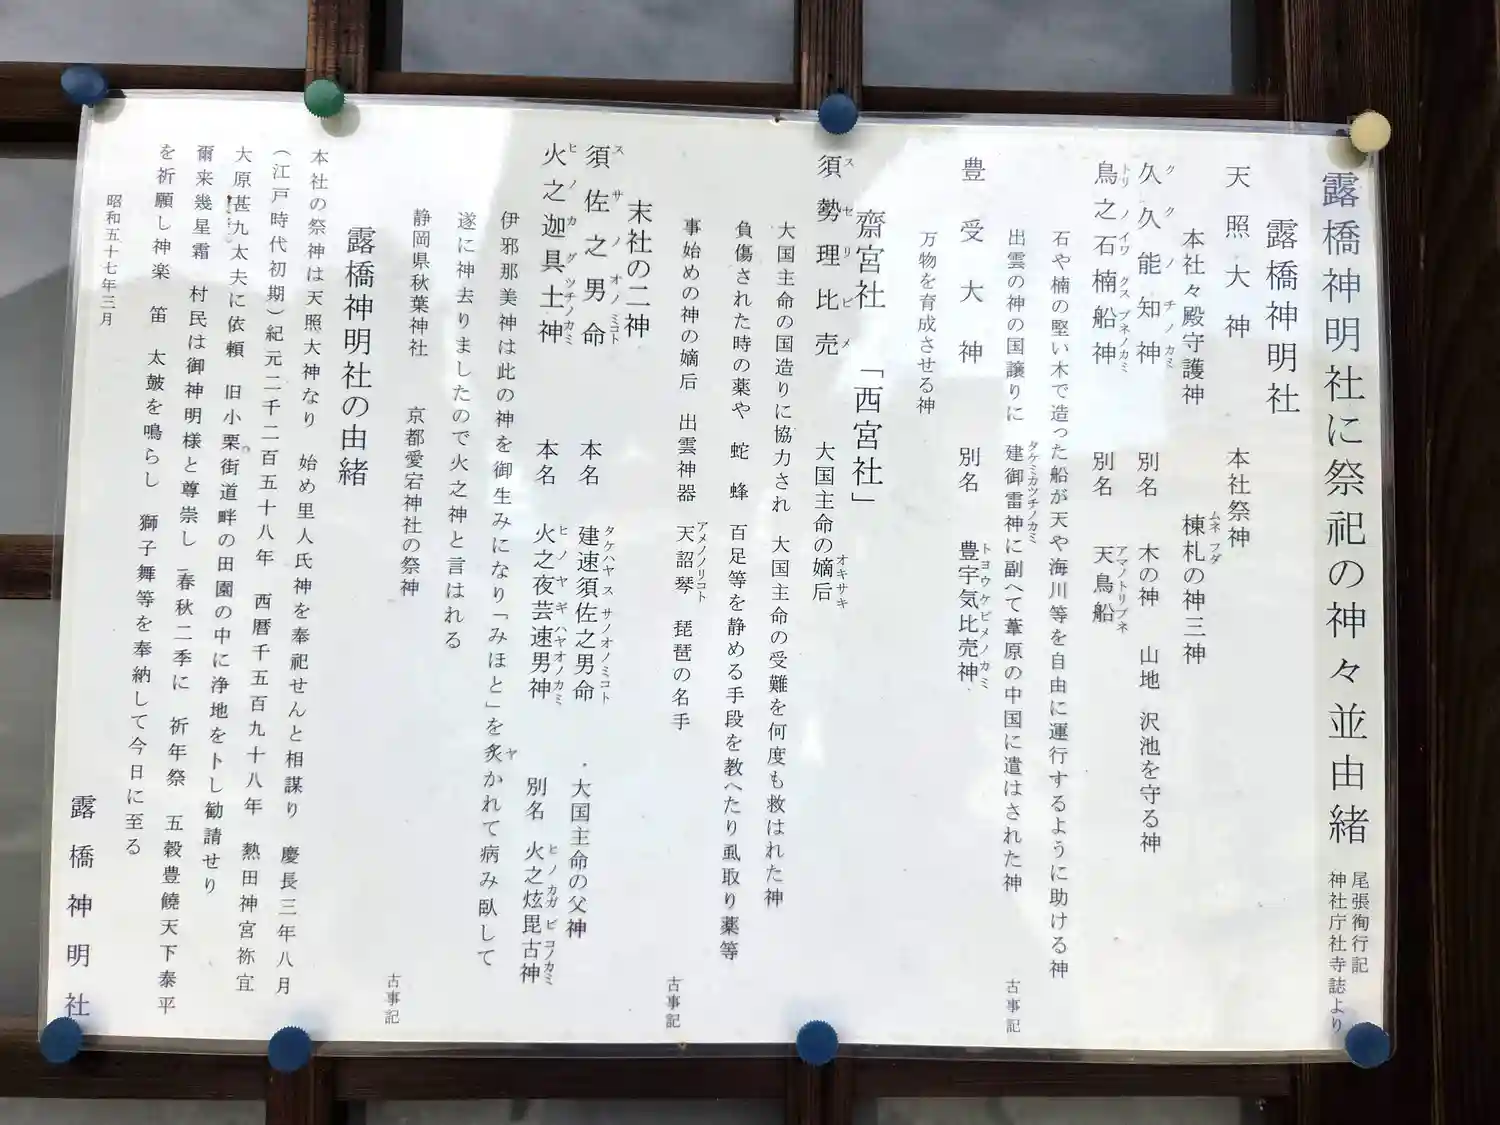 露橋神明社に祭祀の神々並由緒 尾張徇行記
神社庁社寺誌より
露橋神明社
天照大神 本社祭神
本社々殿守護神 棟札の神三神
久久能知神 別名 木の神 山地 沢池を守る神
鳥之石楠船神 別名 天鳥船
石や楠の堅い木で造った船が天や海川等を自由に運行するように助ける神
出雲の神の国譲りに 建御雷神に副へて葦原の中国に遣はされた神 古事記
豊受大神 別名 豊宇気比売神
万物を育成させる神
齋宮社 「西宮社」
須勢理比売 大国主命の嫡后
大国主命の国造りに協力され 大国主命の受難を何度も救はれた神
負傷された時の薬や 蛇 蜂 百足等を静める手段を教へたり虱取り薬等
事始めの神の嫡后 出雲神器 天詔琴 琵琶の名手 古事記
末社の二神
須佐之男命 本名 建速須佐之男命 ・大国主命の父神
火之迦具土神 本名 火之夜芸速男神 別名 火之炫毘古神
伊邪那美神は此の神を御生みになり「みほと」を炙かれて病み臥して
遂に神去りましたので火之神と言はれる
静岡県秋葉神社 京都愛宕神社の祭神 古事記
露橋神明社の由緒
本社の祭神は天照大神なり 始め里人氏神を奉祀せんと相謀り 慶長三年八月
(江戸時代初期)紀元二千二百五十八年 西暦千五百九十八年 熱田神宮祢宜
大原甚九太夫に依頼 旧小栗街道畔の田園の中に浄地を卜し勧請せり
爾来幾星霜 村民は御神明様と尊崇し 春秋二季に 祈年祭 五穀豊饒天下泰平
を祈願し神楽 笛 太皷を鳴らし 獅子舞等を奉納して今日に至る
昭和五十七年三月
露橋神明社